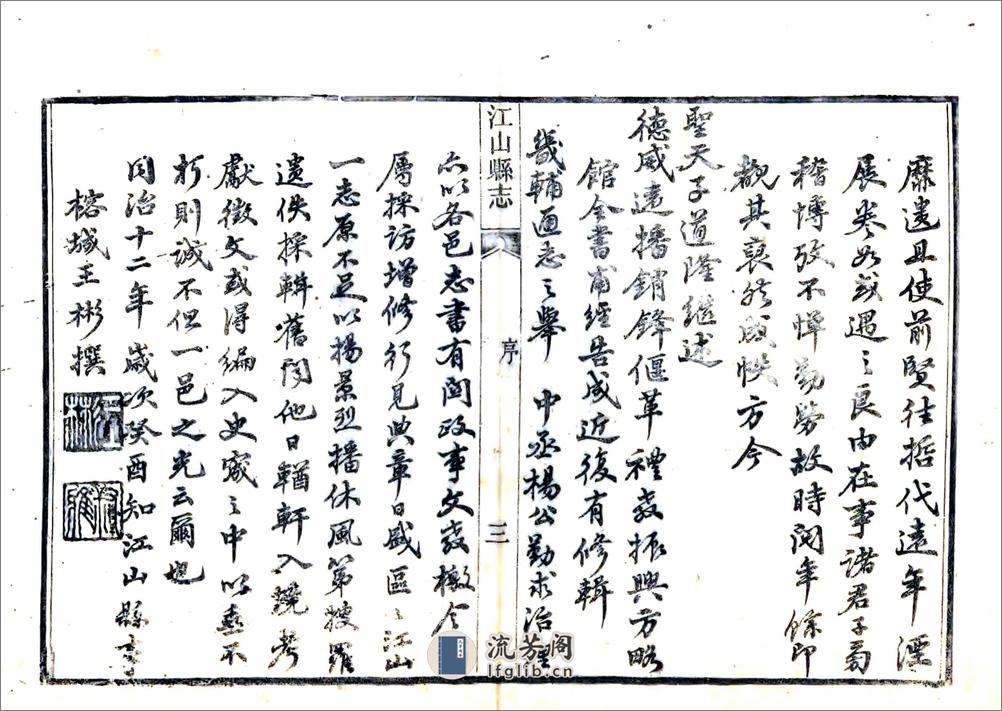 靡遺且使前賢往哲代遠年湮
展卷如或遇之良由在事諸君子罔
稽博攷不憚勤勞故時閱年餘即
觀其裒然成帙方今
聖天子道隆繼述
德威遠播銷鋒偃革禮教振興方略
館全書甫經告成近復有修輯
畿輔通志之舉 中丞楊公勤求治理
亦以各邑志書有關政事文教檄令
屬採訪增修行見典章日盛區區江山
一志原不足以揚景烈播休風第搜羅
遺佚採輯舊聞他日輶軒入境考
獻徵文或得編入史宬之中以垂不
朽則誠不但一邑之光云爾也
同治十二年歲次癸酉知江山縣事
榕城王彬撰
江山縣志
序
三
流芳阁
lfglib.cn